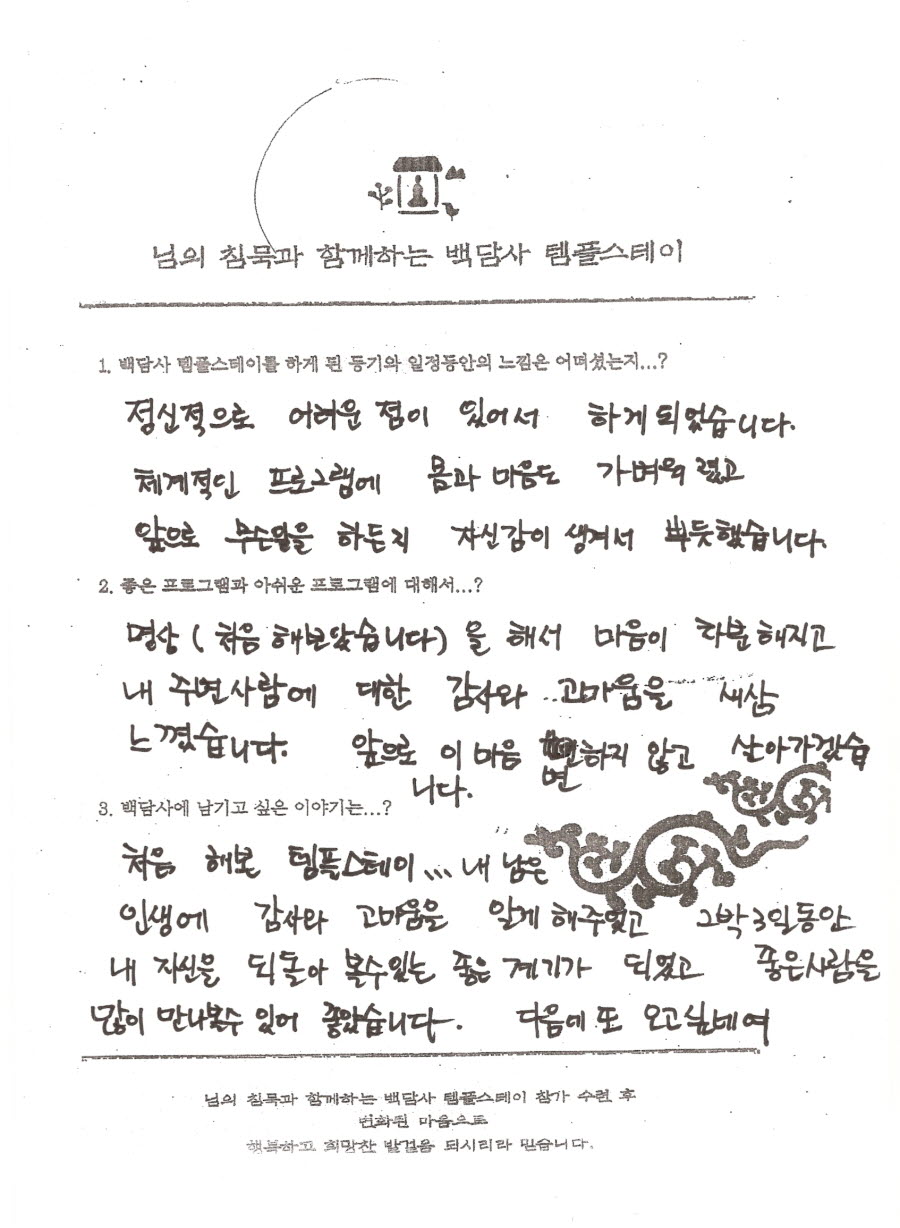 님의 침묵과 함께하는 백담사 템플스테이
1. 백담사 템플스테이를 하게 된 동기와 일정동안의 느낌은 어떠셨는지...?
정신적으로 어려운 점이 있어서 하게 되었습니다.
체계적인 프로그램에 몸과 마음도 가벼워 졌고
앞으로 무슨일을 하든지 자신감이 생겨서 뿌듯했습니다.
2. 좋은 프로그램과 아쉬운 프로그램에 대해서...?
명상 ( 처음 해보았습니다) 을 해서 마음이 차분해지고
내 주변사람에 대한 감사와 고마움을 새삼
느꼈습니다. 앞으로 이 마음 변하지 않고 살아가겠습
니다.
3. 백담사에 남기고 싶은 이야기는...?
처음 해본 템플스테이 ... 내 남은
인생에 감사와 고마움을 알게 해주었고 2박 3일동안
내 자신을 되돌아 볼수있는 좋은 계기가 되었고 좋은사람을
많이 만나볼수 있어 좋았습니다. 다음에 또 오고싶네여
님의 침묵과 함께하는 백담사 템플스테이 참가 수련 후
변화된 마음으로
행복하고 희망찬 발걸음 되시리라 믿습니다.